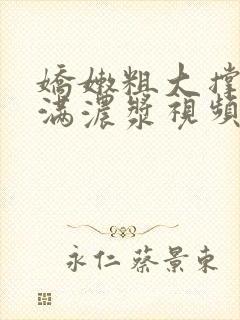 嬌嫩粗大撐
滿濃漿視頻
永仁蔡景東